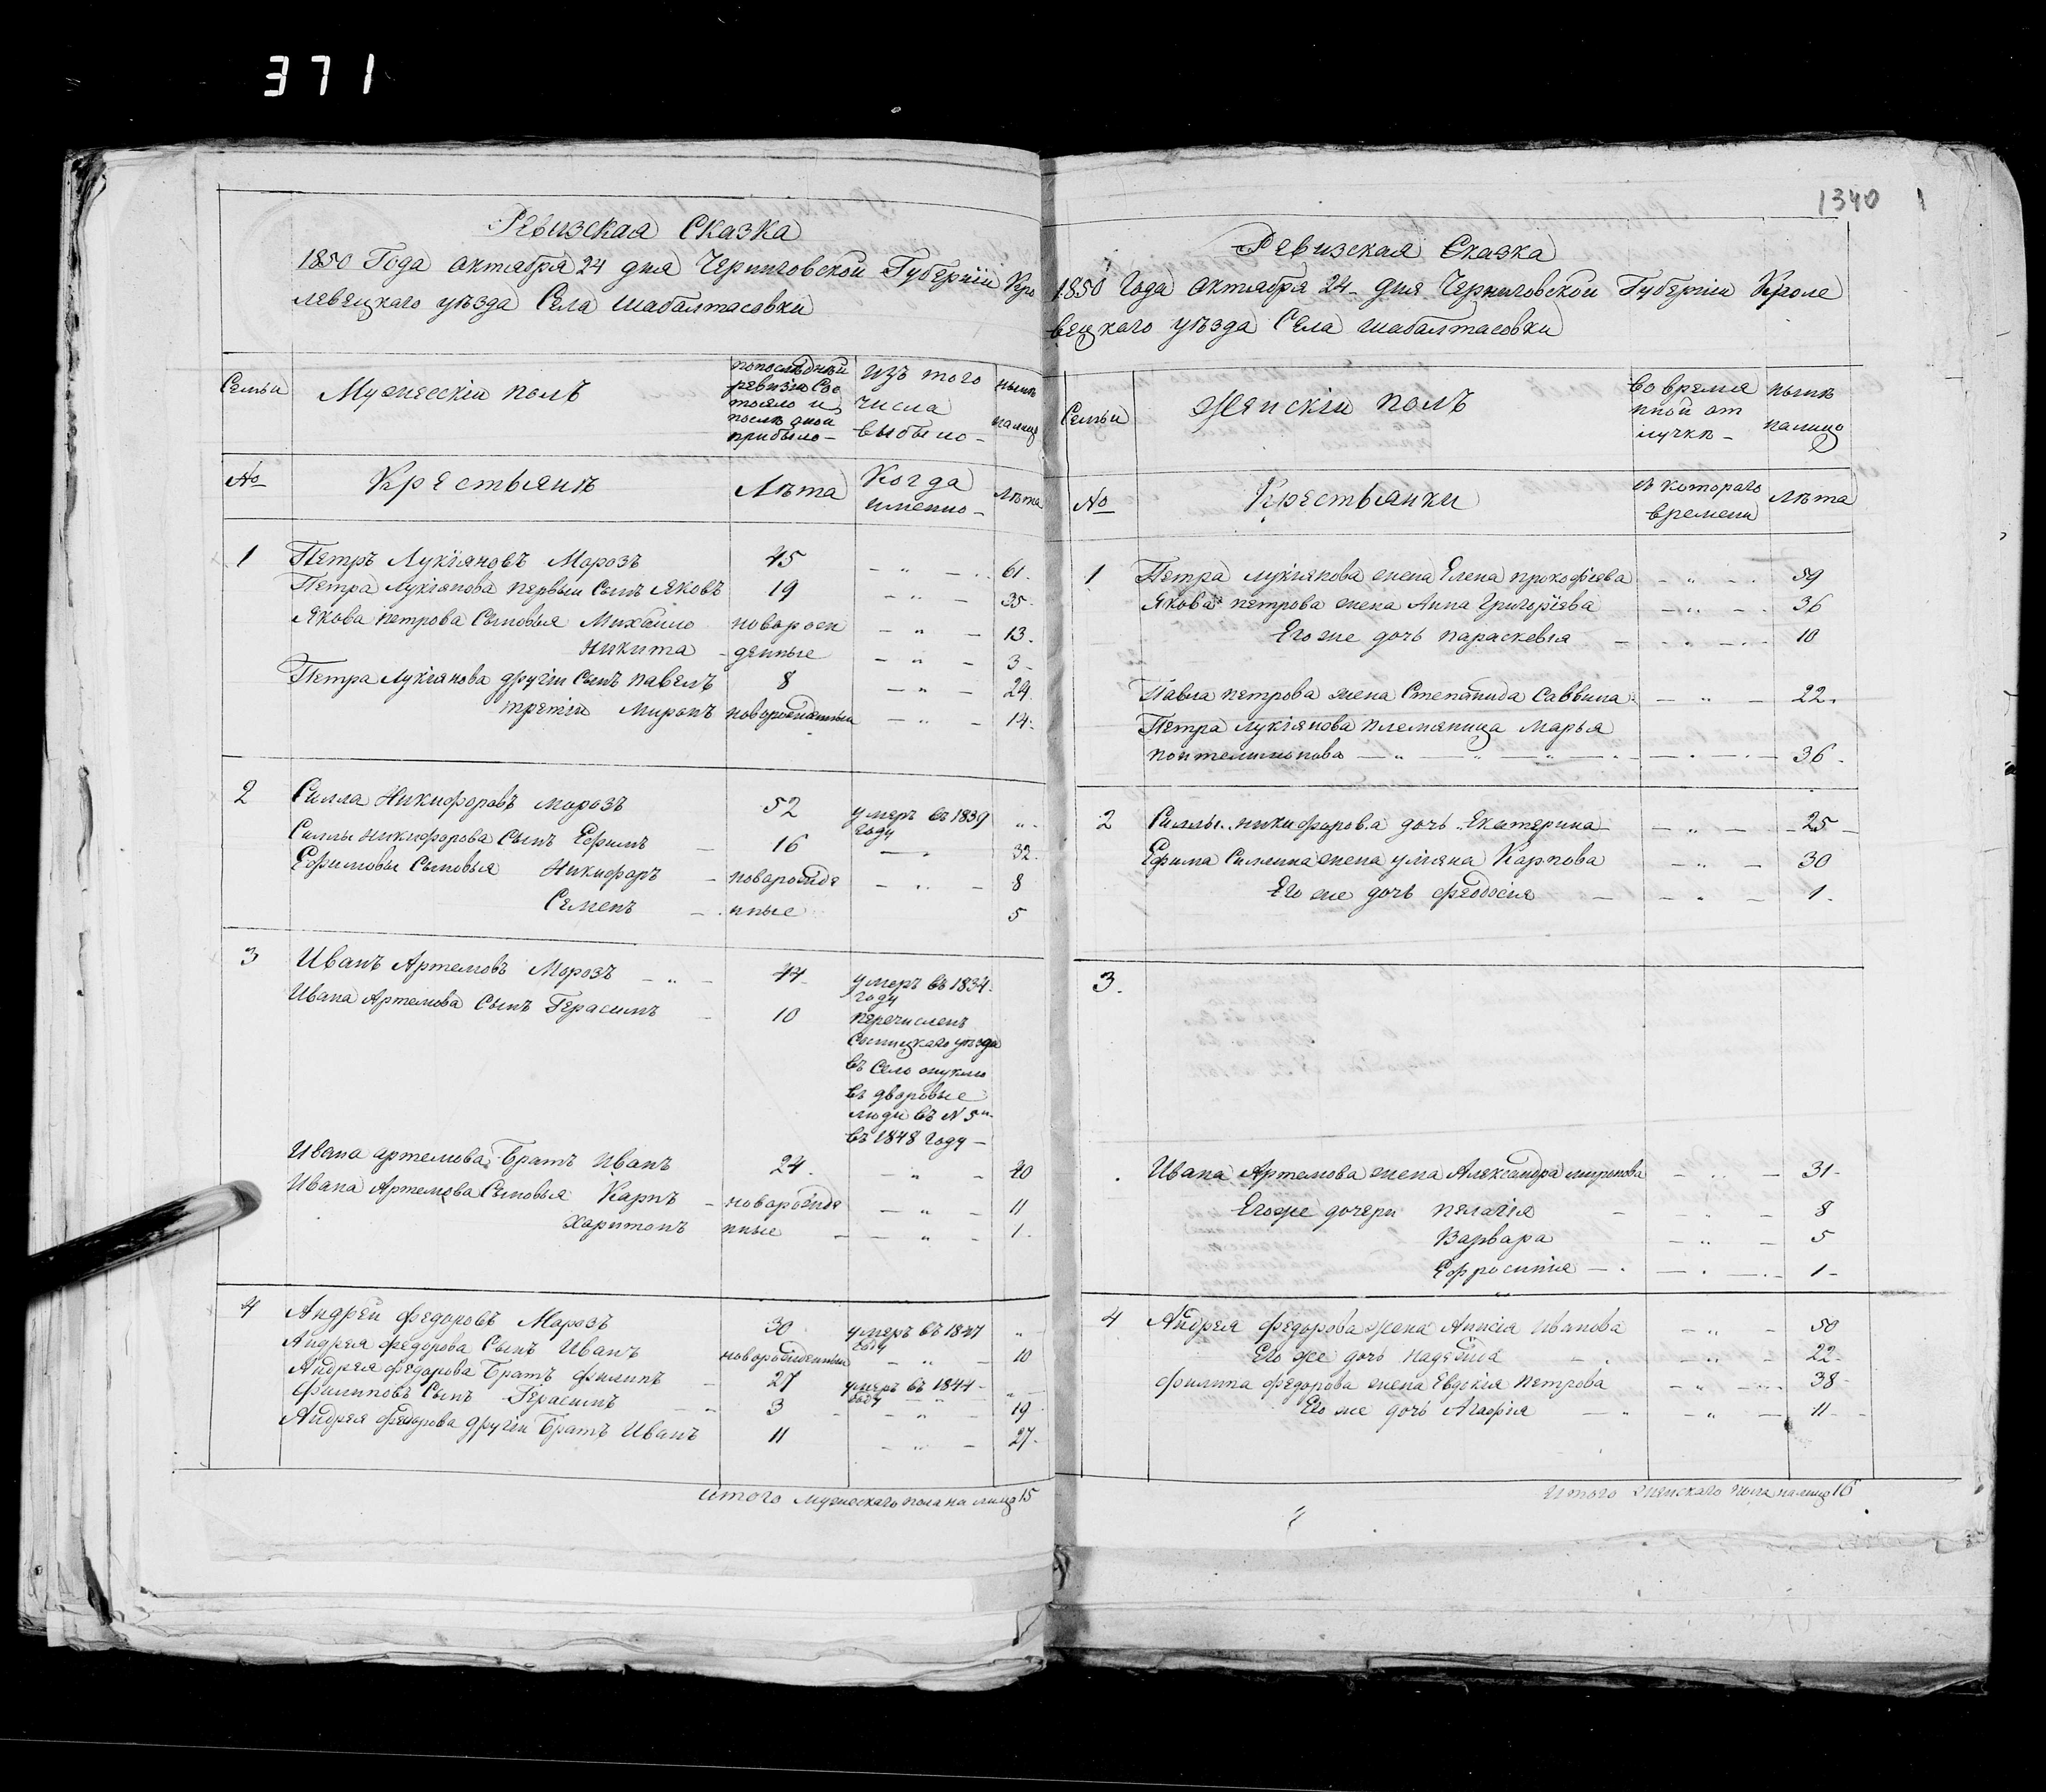 371
Ревизская Сказка
1850 Года октября 24 дня Черниговской Губернiи Кро
левецкаго уѣзда Села Шабалтасовки
Семьи
Мужескiй полъ
попослѣдней
ревизiи Сос
тояло и
послѣ оной
прибыло
изъ того
числа
выбыло
нынѣ
налицо
№
Крестьянъ
Лѣта
Когда
именно
Лѣта
1 Петръ Лукiяновъ Морозъ 45 61.
Петра Лукiянова первый Сынъ Яковъ 19 35.
Якова петрова Сыновья Михайло новорож 13.
Никита денные 3
Петра Лукiянова другiй Сынъ павелъ 8 24
третiй Миронъ новорожденный 14.
2 Силла Никифоровъ морозъ 52 умеръ въ 1839
году
Силлы Никифорова Сынъ Ефимъ 16 32.
Ефимовы Сыновья Никифоръ новорожде 8
Семенъ нные 5
3 Иванъ Артемовъ Морозъ 44 умеръ въ 1834
году
Ивана Артемова Сынъ Герасимъ 10 перечисленъ
уѣзда
въ Село
въ дворовые
люди въ N 5
въ 1848 году
Ивана артемова Братъ Иванъ 24. 40
Ивана Артемова Сыновья Карпъ новорожде 11
Харитонъ нные 1.
4 Андрей федоровъ Морозъ 30 умеръ въ 1847
году
Андрея федорова Сынъ Иванъ новорожденный 10
Андрея федорова Братъ филипъ 27 умеръ въ 1844
году
филиповъ Сынъ Герасимъ 3 19
Андрея федорова другiй Братъ Иванъ 11 27
итого мужескаго пола на лицо 15
1340 1
Ревизская Сказка
1850 Года октября 24 дня Черниговской Губернiи Кроле
вецкаго уѣзда Села шабалтасовки
Семьи
Женскiй полъ
во время
нной от
лучкѣ
нынѣ
налицо
№
Крестьянки
съ котораго
времени
лѣта
1 Петра лукiянова жена Елена прокофiева 59
Якова петрова жена Анна Григорiева 36
Его же дочь параскевiя 10
Павла петрова жена Степанида Саввина 22.
Петра лукiянова племяница Марья
понтелимонова 36.
2 Силлы никифорова дочь Екатерина 25
Ефима Силлина жена улiяна Карпова 30
Его же дочь феодосiя 1.
3.
Ивана Артемова жена Александра миронова 31
Егоже дочери пелагiя 8
Варвара 5
Ефросинiя 1
4 Андрея федорова жена Анисiя Иванова 50
Его же дочь надежда 22.
филипа федорова жена Евдокiя петрова 38
Его же дочь Агафiя 11
Итого женскаго пола налицо 16